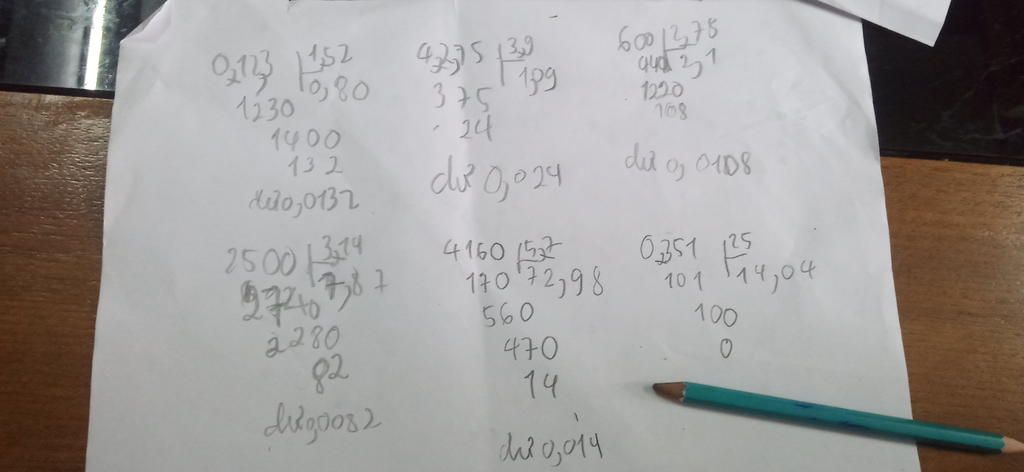 0,123 1,52
0,80
1230
1400
132
dư 0,0132
42,75 3,9
1,09
375
24
dư 0,024
600 2,78
2,1
1220
108
dư 0,0108
2500 3,14
7,87
2280
82
dư 0,0082
4160 5,7
170 72,98
560
470
14
dư 0,014
0,351 25
101 14,04
100
0